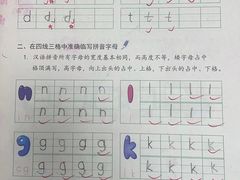 d d d t t t
二、在四线三格中准确临写拼音字母
1. 汉语拼音所有字母的宽度基本相同，而高度不等，矮字母占中
格顶满写，高字母，向上出头的占中、上格，下出头的占中、下格。
n n n n n l l l l l
g g g g g k k k k k